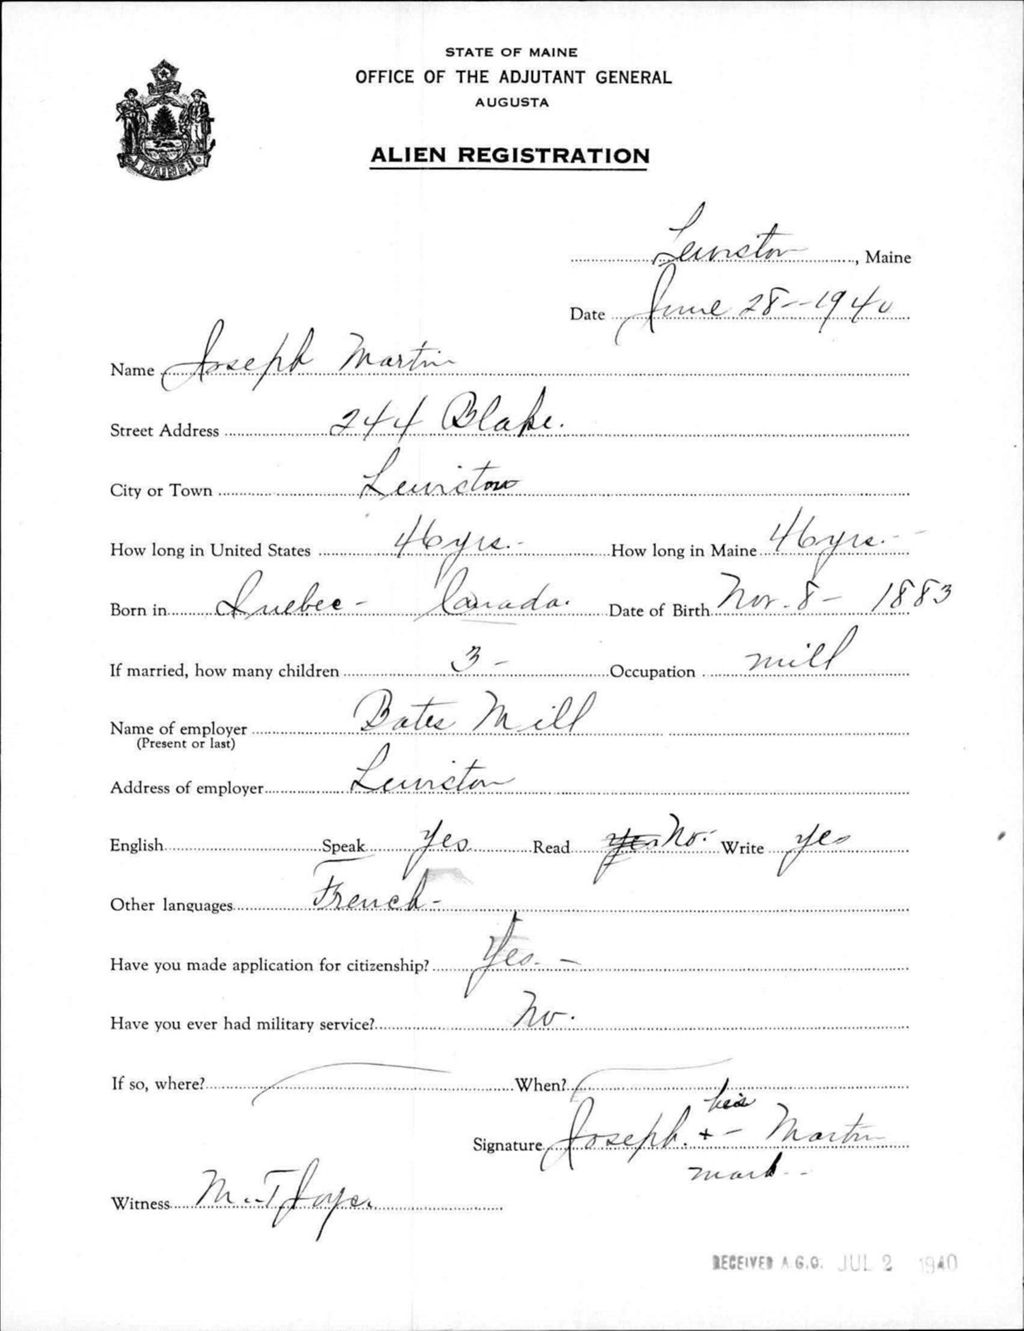 STATE OF MAINE
OFFICE OF THE ADJUTANT GENERAL
AUGUSTA
ALIEN REGISTRATION
MAINE
Lewiston, Maine
Date June 28-1940
Name Joseph Martin
Street Address 244 Blake.
City or Town Lewiston
How long in United States 46 yrs. How long in Maine 46 yrs.
Born in Quebec - Canada. Date of Birth Nov. 8 - 1883
If married, how many children 3 - Occupation mill
Name of employer Bates Mill
(Present or last)
Address of employer Lewiston
English Speak Yes Read Yes No. Write Yes
Other languages French -
Have you made application for citizenship? Yes. -
Have you ever had military service? No.
If so, where? When?
his
Signature Joseph. + - Martin
mark
Witness M. T. Joyce.
RECEIVED A.G.O. JUL 2 1940